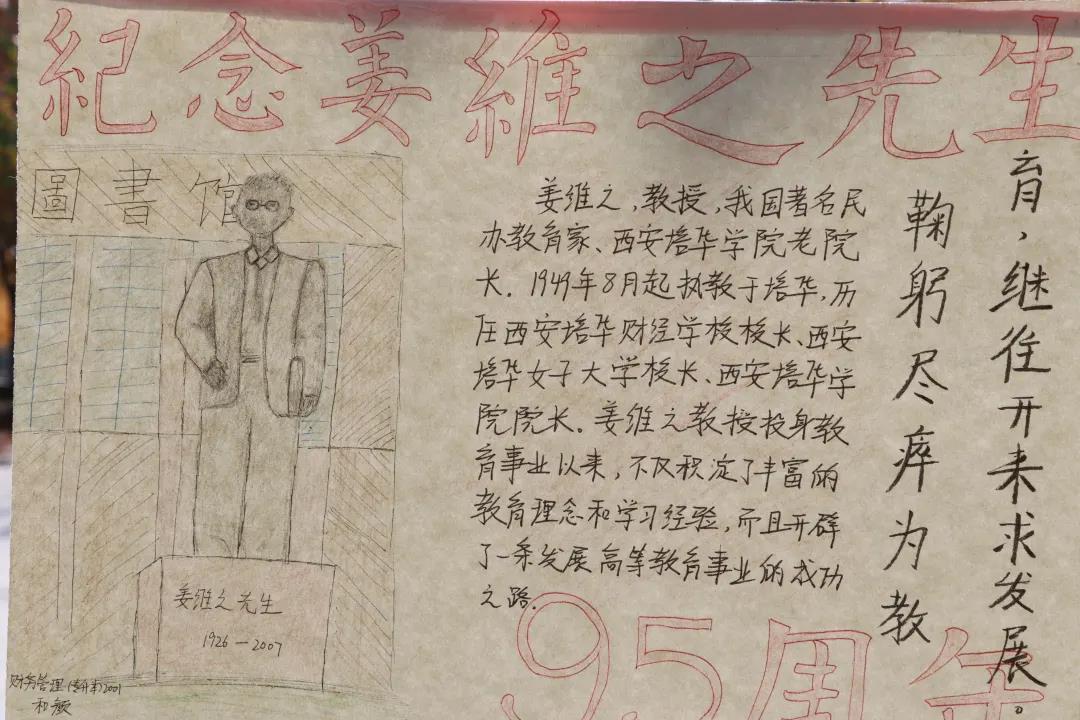 紀念姜維之先生
圖書馆
姜维之先生
1926—2007
财务管理(专升本)2001
和颜
姜维之,教授,我国著名民
办教育家、西安培华学院老院
长。1949年8月起执教于培华,历
任西安培华财经学校校长、西安
培华女子大学校长、西安培华学
院院长。姜维之教授投身教
育事业以来,不仅积淀了丰富的
教育理念和学习经验,而且开辟
了一条发展高等教育事业的成功
之路。
鞠躬尽瘁为教
育,继往开来求发展。
95周年